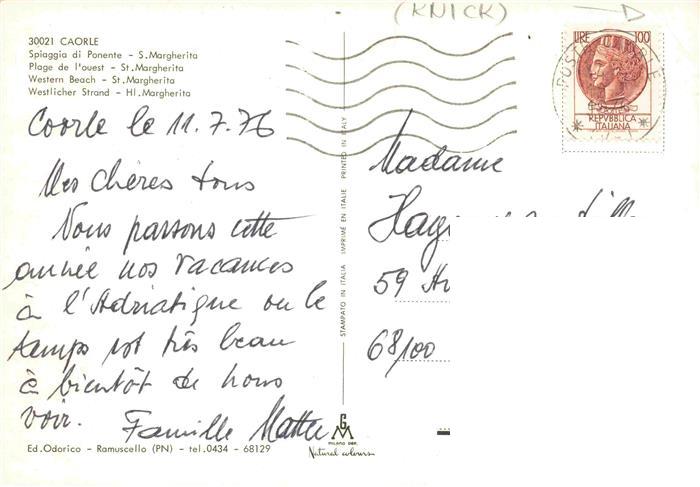 (KNICK)
30021 CAORLE
Spiaggia di Ponente - S. Margherita
Plage de l'ouest - St. Margherita
Western Beach - St. Margherita
Westlicher Strand - Hl. Margherita
LIRE 100
REPVBBLICA
ITALIANA
Caorle le 11.7.76
Mes chères tous
Nous passons cette
année nos vacances
à l'Adriatique ou le
temps est très beau
à bientôt de nous
voir.
Famille
STAMPATO IN ITALIA IMPRIMÉ EN ITALIE PRINTED IN ITALY
Madame
59
68100
GM
MILANO DEP.
Natural colours
Ed. Odorico - Ramuscello (PN) - tel. 0434 - 68129